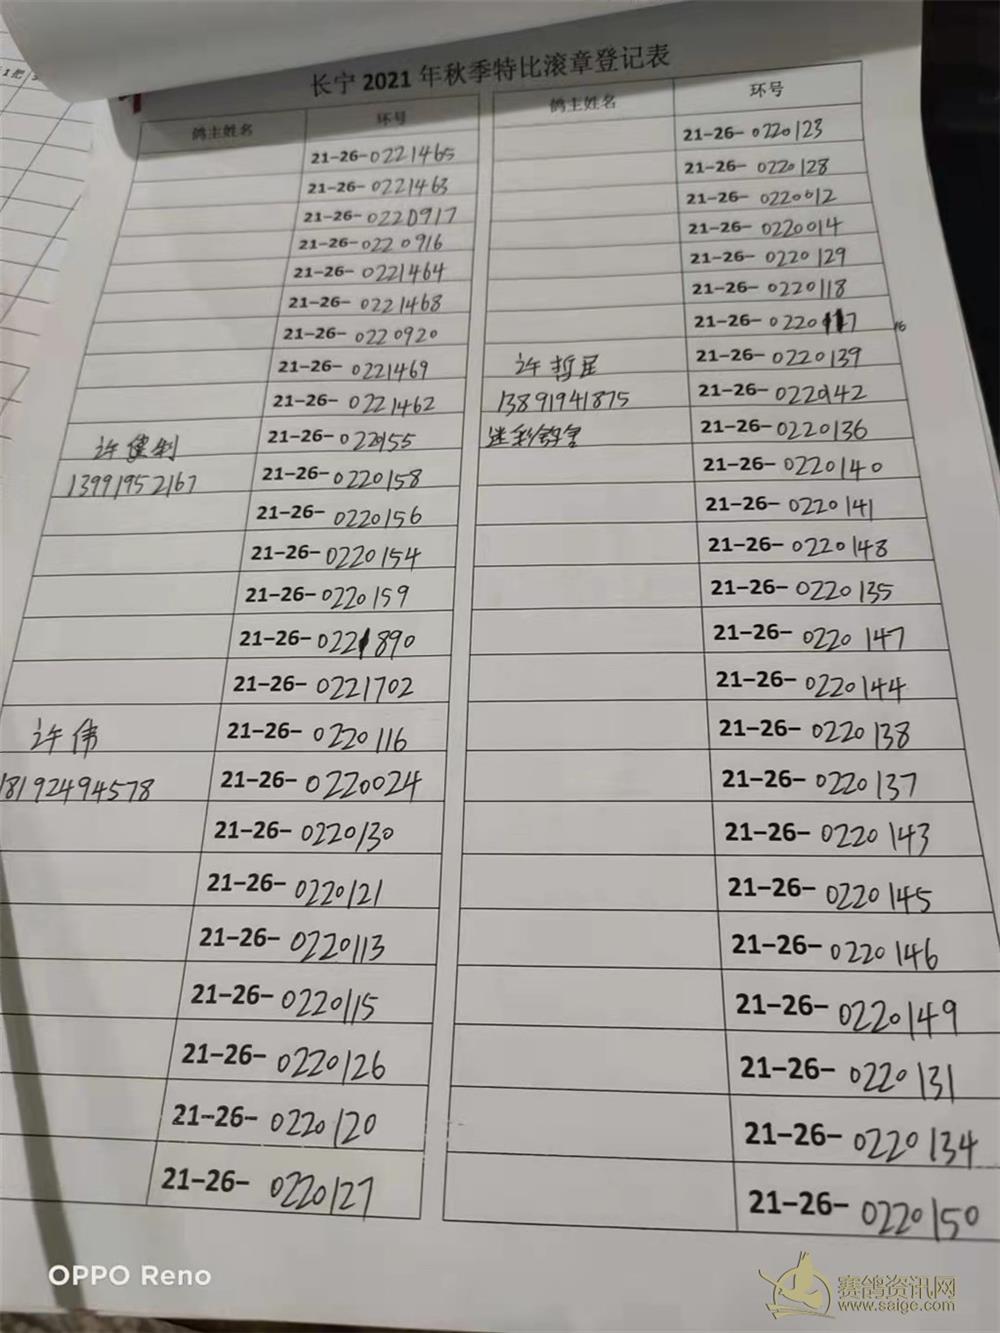 长宁 2021 年秋季特比滚章登记表
鸽主姓名 环号
21-26-0221465
21-26-0221463
21-26-0220917
21-26-0220916
21-26-0221464
21-26-0221468
21-26-0220920
21-26-0221469
21-26-0221462
许健利 21-26-0220155
13991952167 21-26-0220158
21-26-0220156
21-26-0220154
21-26-0220159
21-26-0221890
21-26-0221702
许伟 21-26-0220116
18192494578 21-26-0220024
21-26-0220130
21-26-0220121
21-26-0220113
21-26-0220115
21-26-0220126
21-26-0220120
21-26-0220127
鸽主姓名 环号
21-26-0220123
21-26-0220128
21-26-0220012
21-26-0220014
21-26-0220129
21-26-0220118
21-26-0220117 16
许哲民 21-26-0220139
13891941875 21-26-0220142
迷彩鸽舍 21-26-0220136
21-26-0220140
21-26-0220141
21-26-0220148
21-26-0220135
21-26-0220147
21-26-0220144
21-26-0220138
21-26-0220137
21-26-0220143
21-26-0220145
21-26-0220146
21-26-0220149
21-26-0220131
21-26-0220134
21-26-0220150
OPPO Reno
赛鸽资讯网
www.saige.com